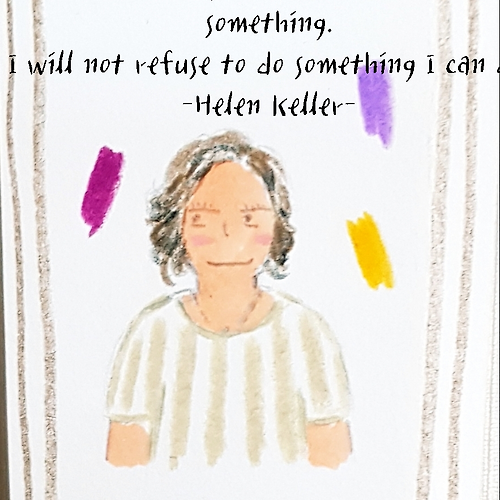 something.
I will not refuse to do something I can
-Helen Keller-